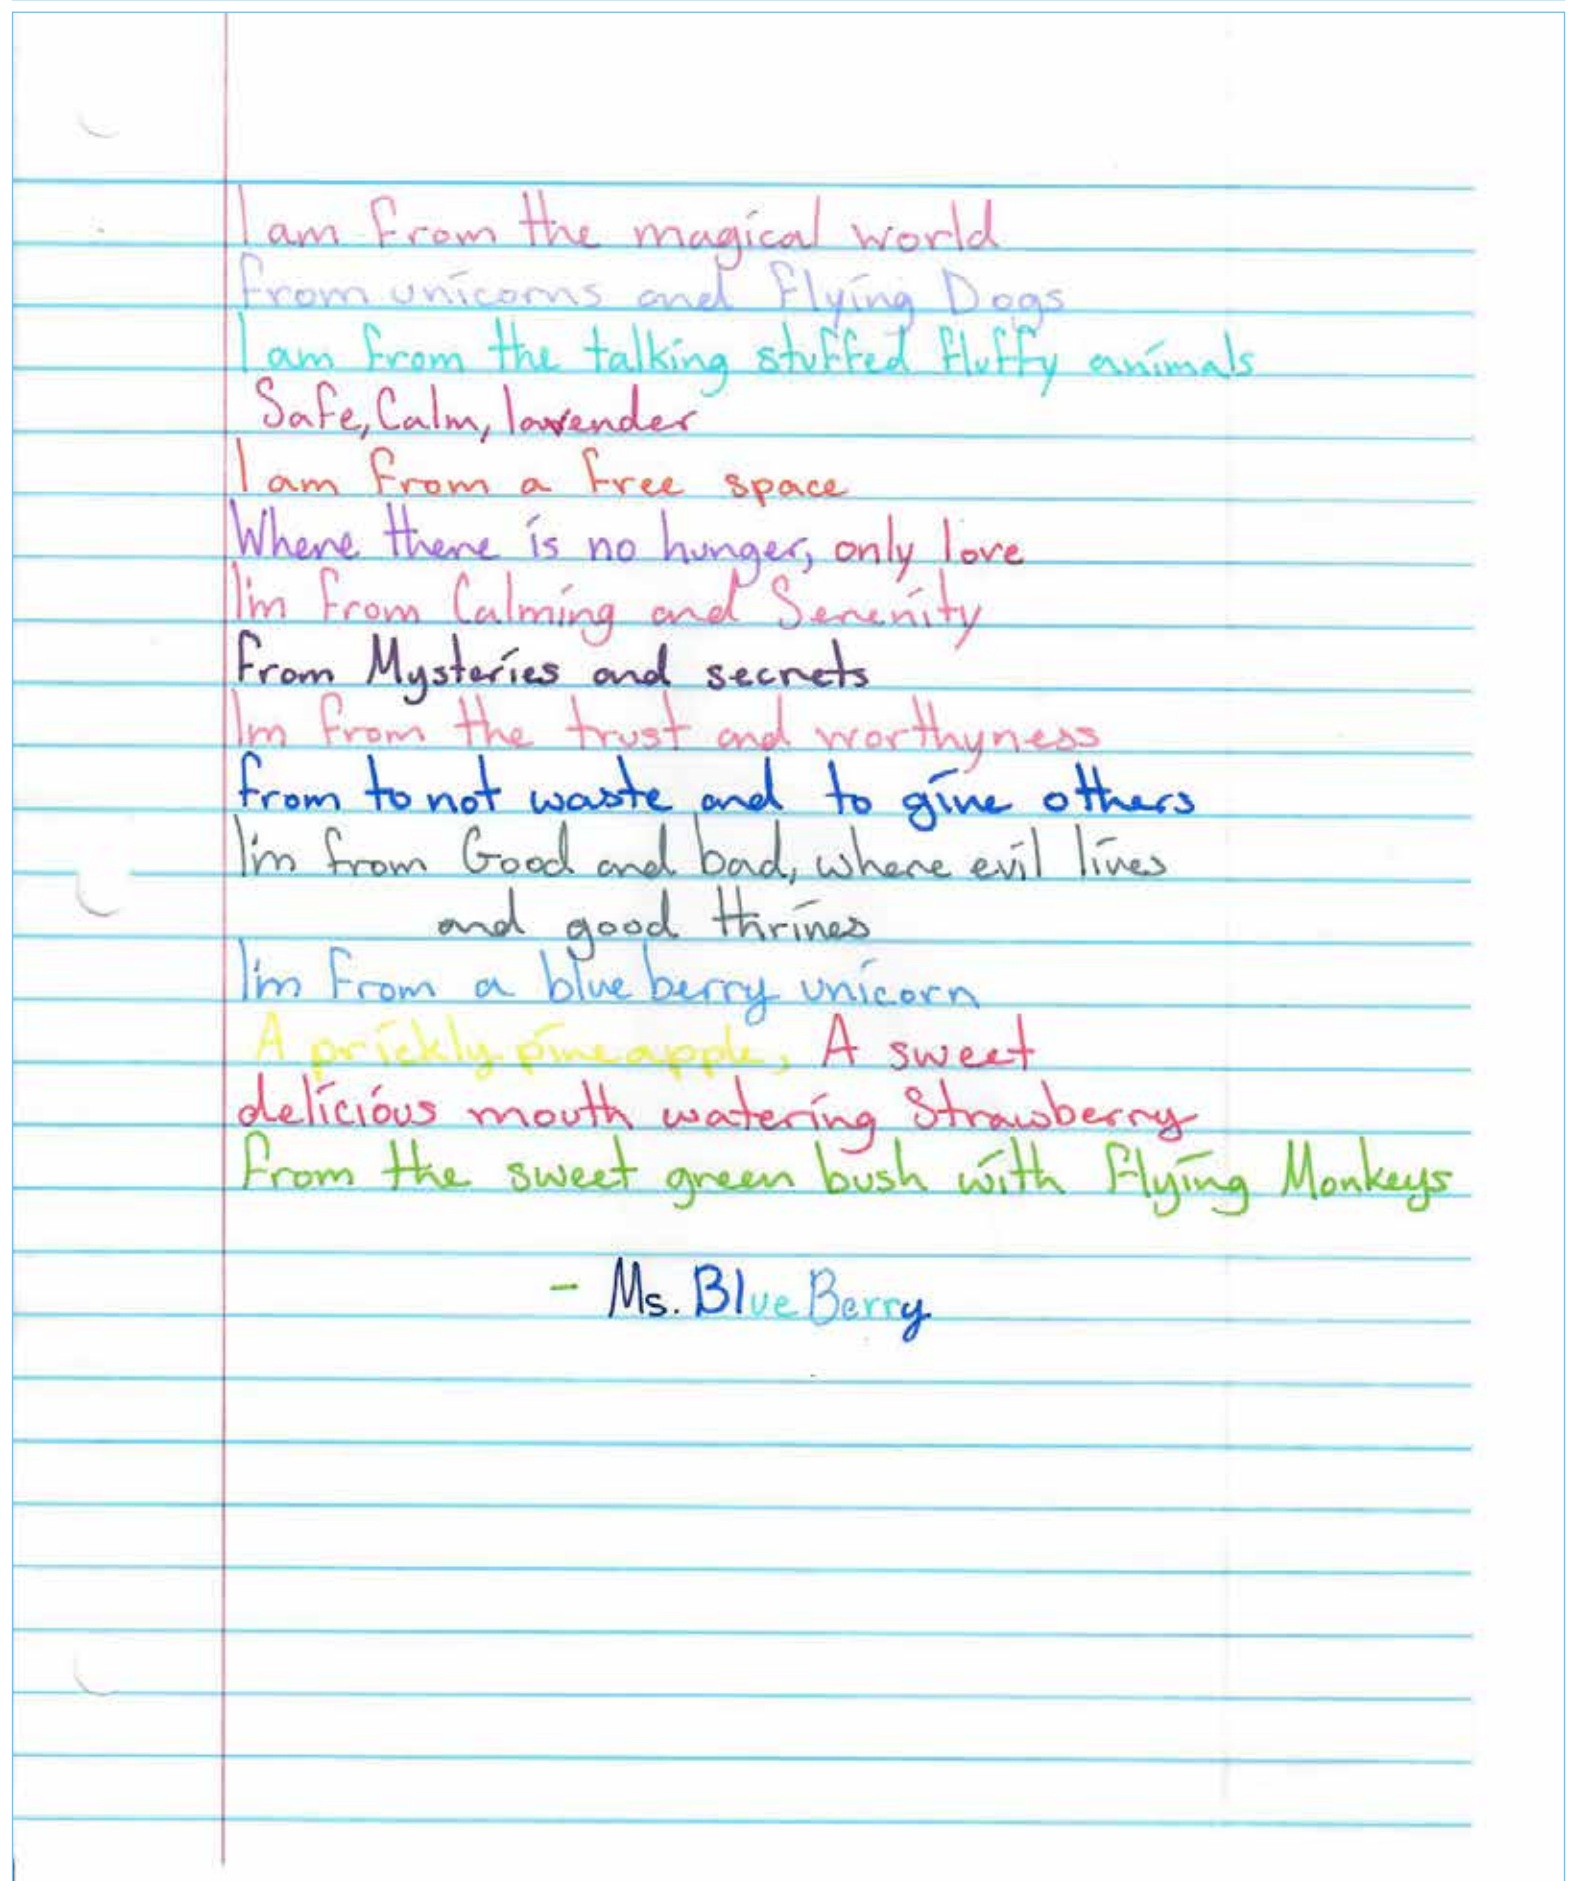 I am from the magical world
from unicorns and flying Dogs
I am from the talking stuffed fluffy animals
Safe, Calm, lavender
I am from a free space
Where there is no hunger, only love
I'm from Calming and Serenity
from Mysteries and secrets
Im from the trust and worthyness
from to not waste and to give others
I'm from Good and bad, where evil lives
and good thrives
I'm from a blue berry unicorn
A prickly pineapple, A sweet
delicious mouth watering Strawberry
from the sweet green bush with flying Monkeys
- Ms. Blue Berry